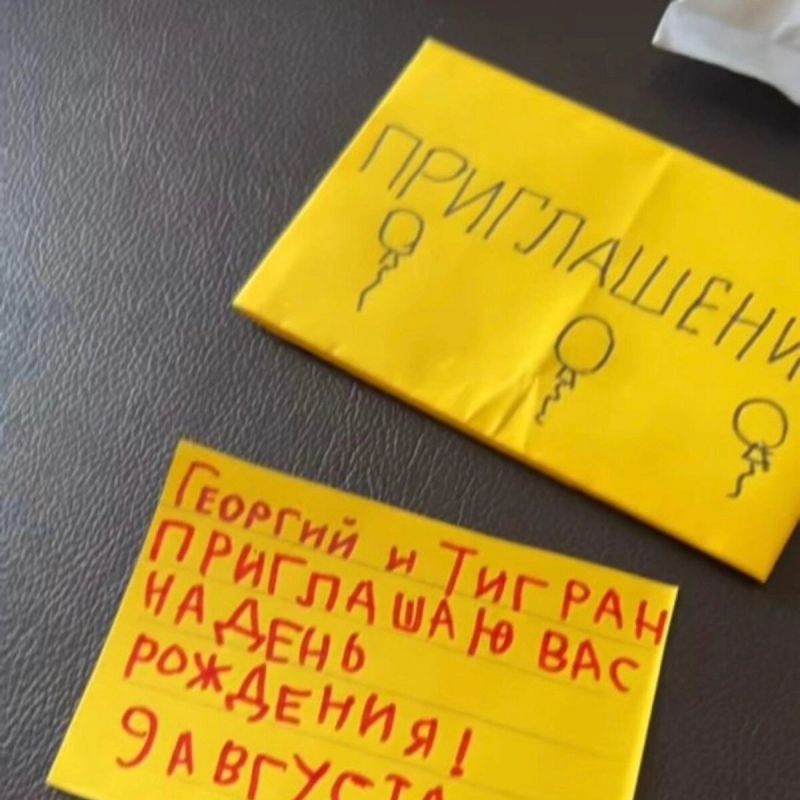 ПРИГЛАШЕНИ
Георгий и Тигран
приглашаю вас
на день
рождения!
9 августа